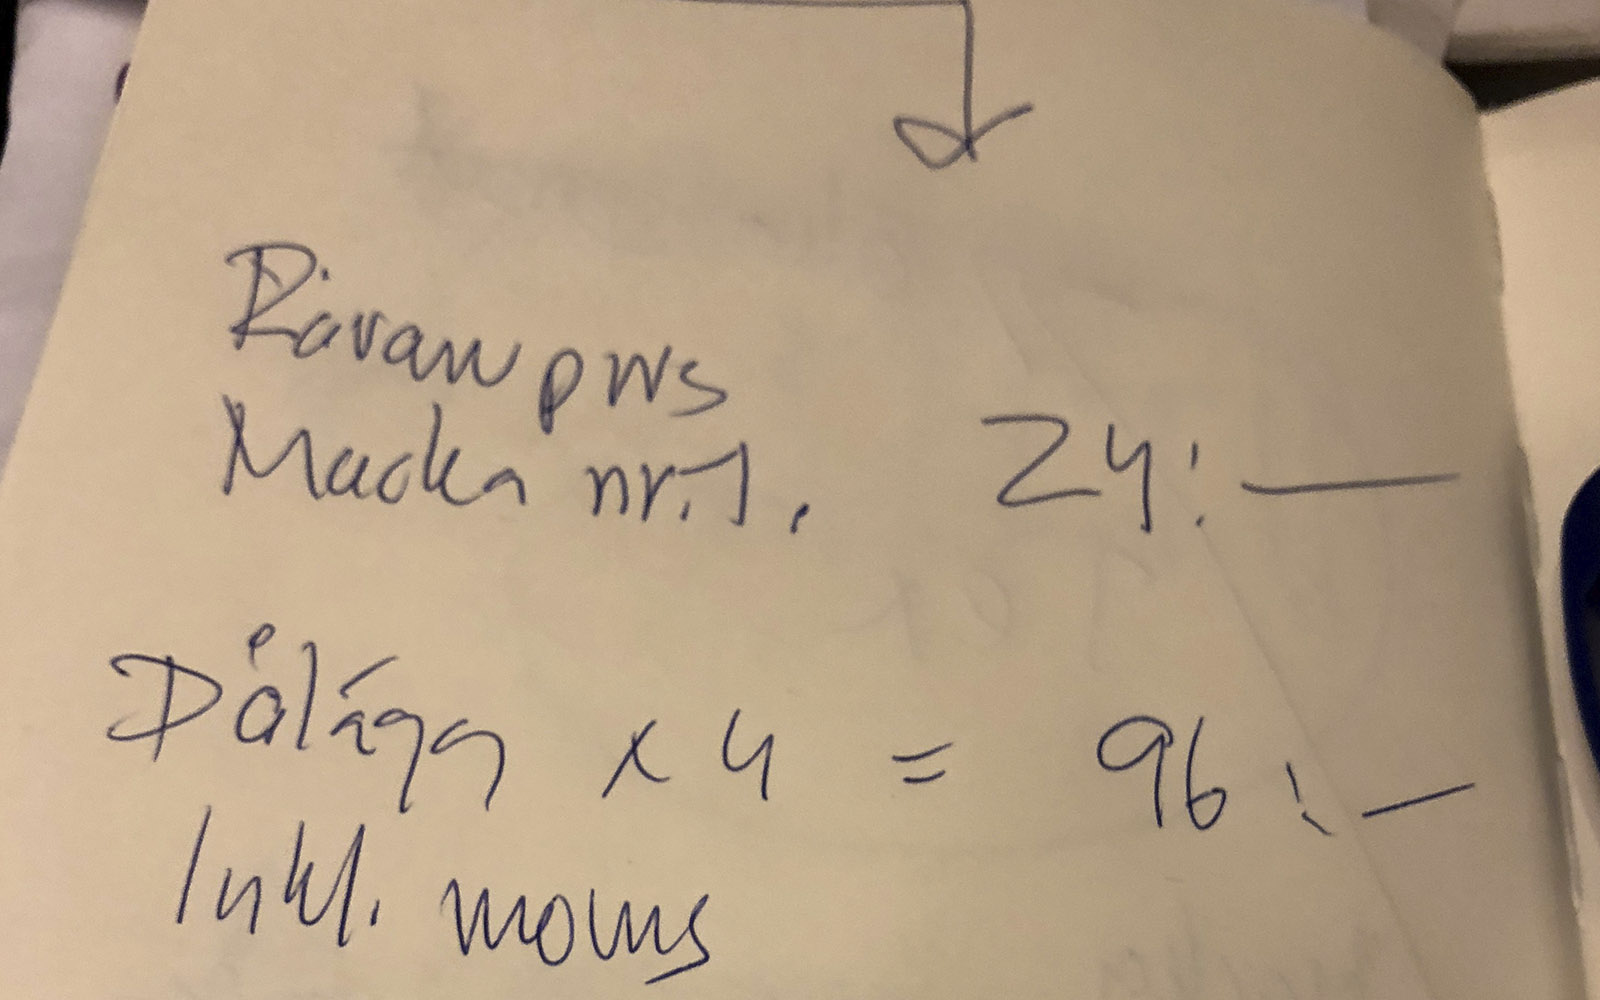 Råvarupris
Macka nr. 1. 24:—
Pålägg x 4 = 96:—
Inkl. moms